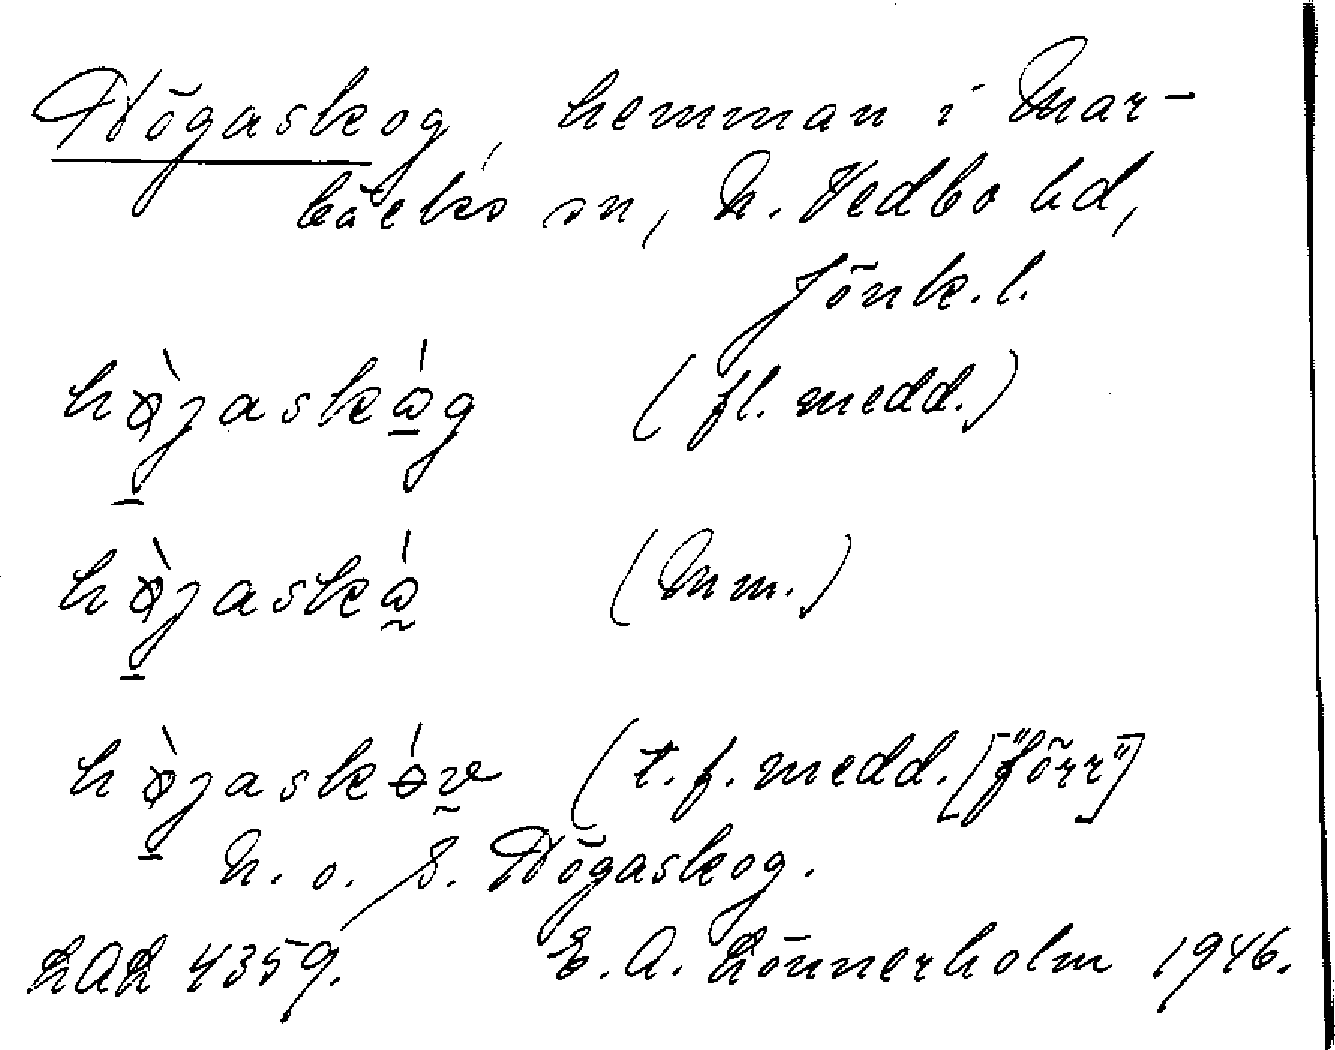 Högaskog, hemman i Mar-
bäcks sn, N. Vedbo hd,
Jönk. l.
hø̀jaskɷ́g (fl. medd.)
hø̀jaskɷ́ (Mm.)
hø̀jaskɵ́v (t. f. medd. ["förr"]
N. o. S. Högaskog.
LAL 4359. E. A. Lönnerholm 1946.